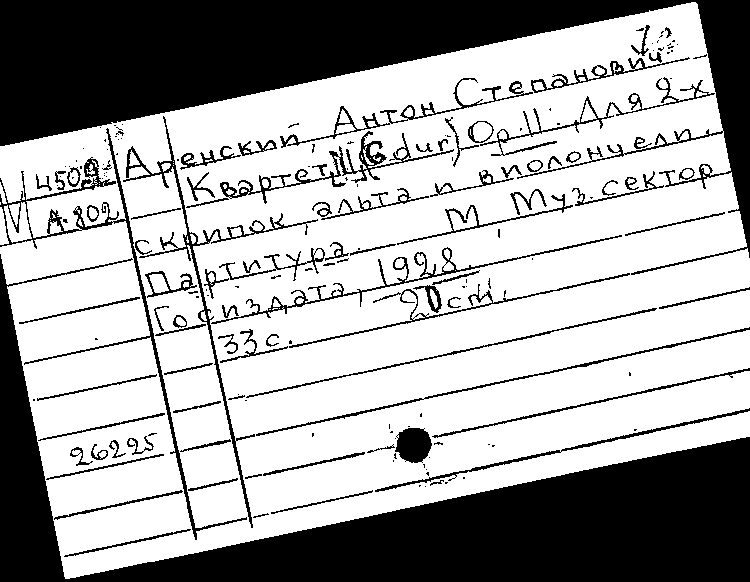 Аренский, Антон Степанович
М 4509
А-802
Квартет (G dur) Op. 11. Для 2-х
скрипок, альта и виолончели.
Партитура. М, Муз. сектор
Госиздата, 1928.
20 см.
33 с.
26225